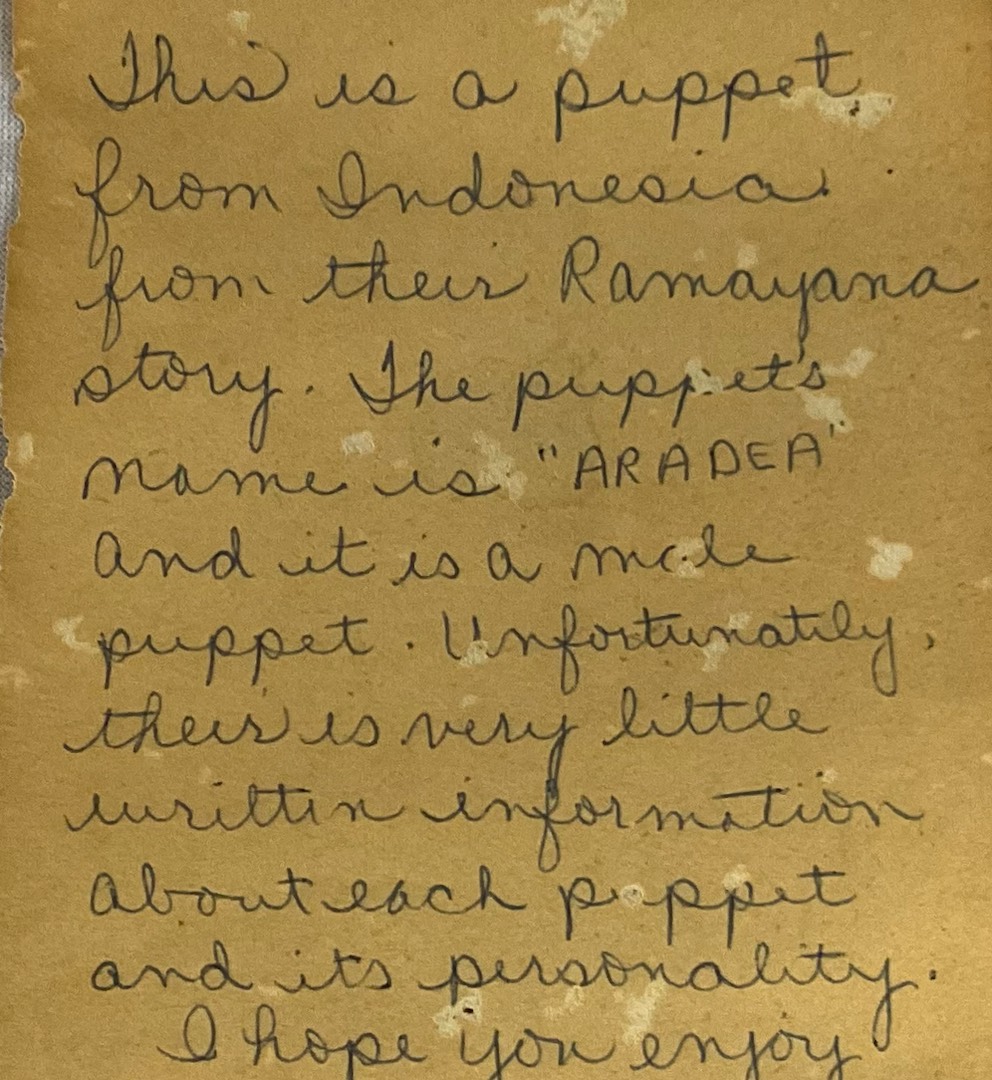 This is a puppet
from Indonesia
from their Ramayana
story. The puppet's
name is "ARADEA"
and it is a male
puppet. Unfortunately,
their is very little
written information
about each puppet
and its personality.
I hope you enjoy